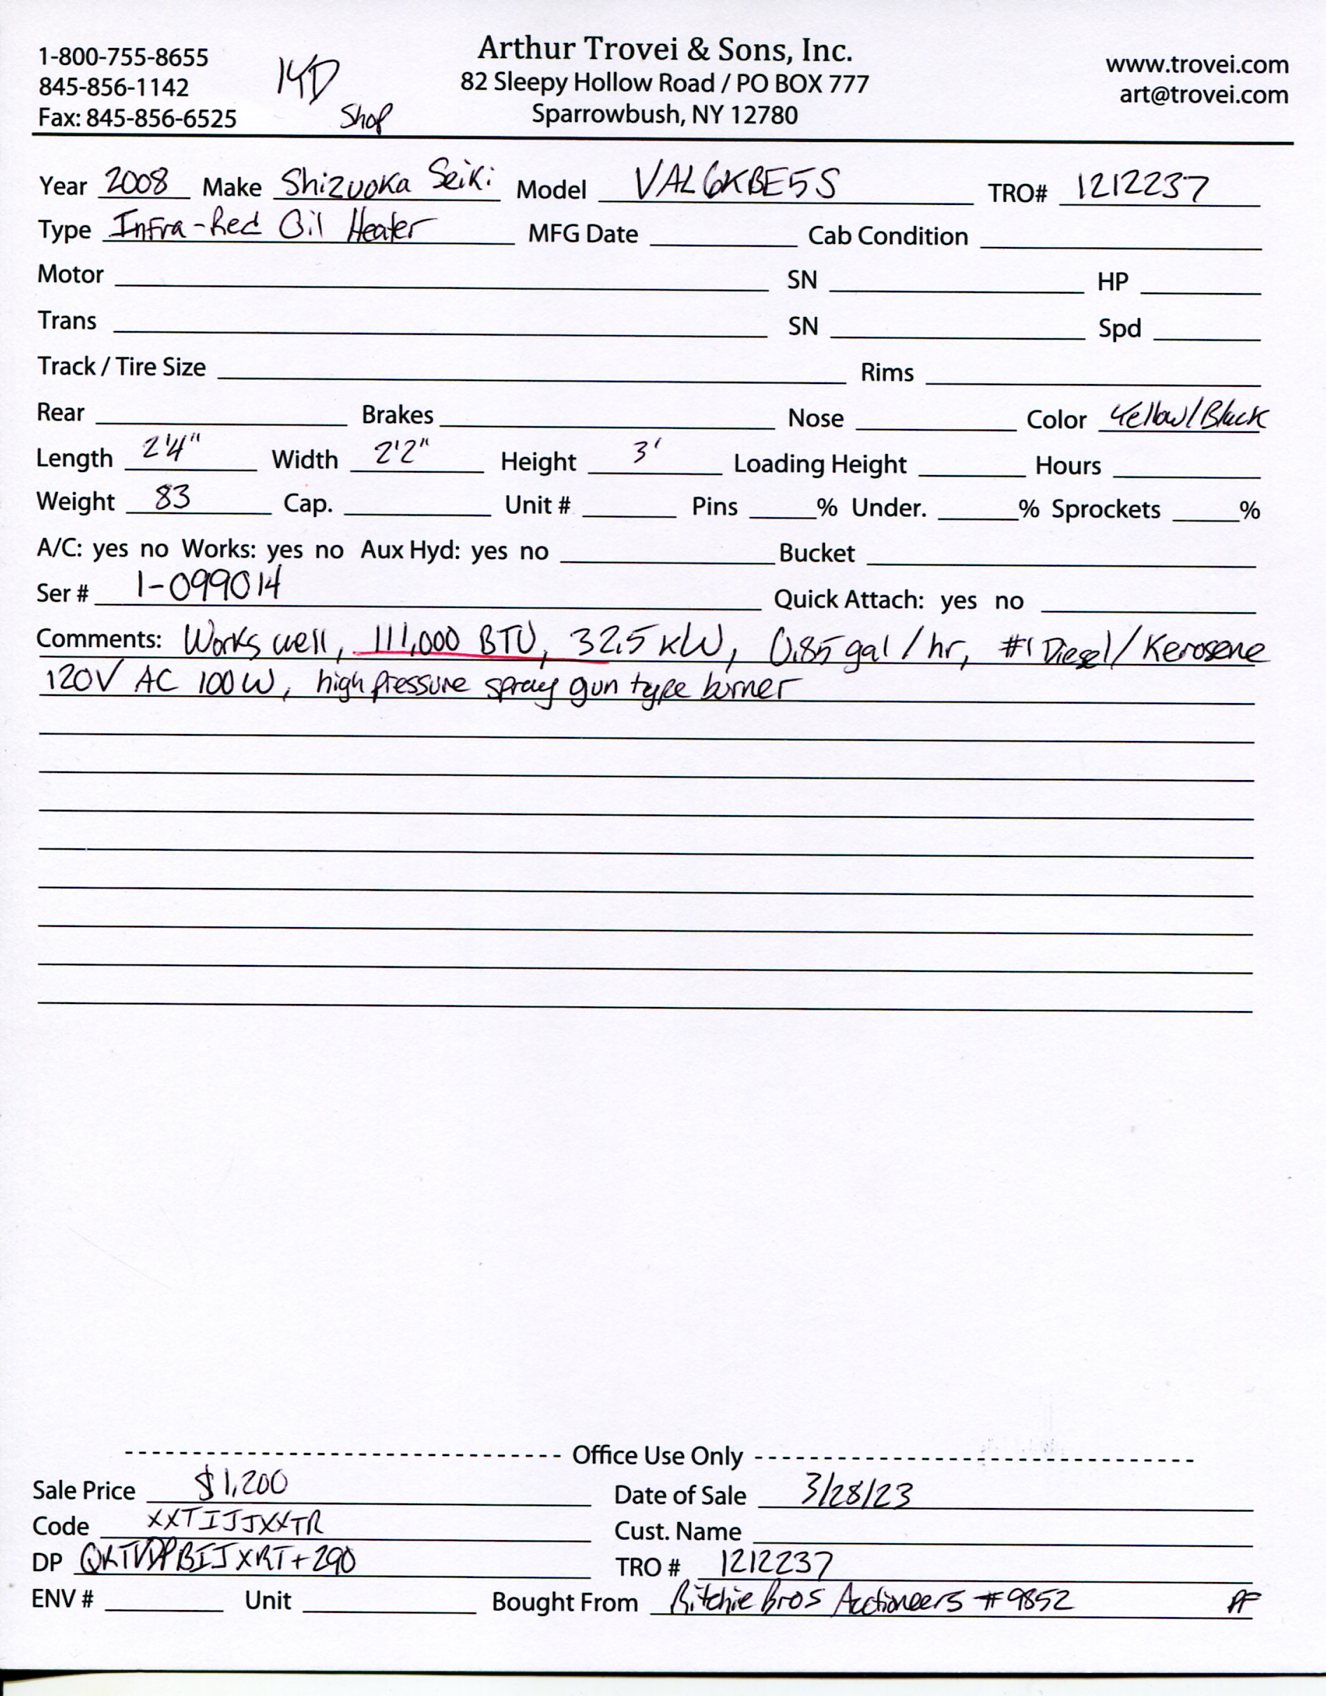 1-800-755-8655
845-856-1142
Fax: 845-856-6525
Shop
Arthur Trovei & Sons, Inc.
82 Sleepy Hollow Road / PO BOX 777
Sparrowbush, NY 12780
www.trovei.com
art@trovei.com
Year 2008 Make Shizuoka Seiki Model VAL6KBE5S TRO# 1212237
Type Infra-Red Oil Heater MFG Date Cab Condition
Motor SN HP
Trans SN Spd
Track / Tire Size Rims
Rear Brakes Nose Color Yellow/Black
Length 2'4" Width 2'2" Height 3' Loading Height Hours
Weight 83 Cap. Unit # Pins % Under. % Sprockets %
A/C: yes no Works: yes no Aux Hyd: yes no Bucket
Ser # 1-099014 Quick Attach: yes no
Comments: Works well, 111,000 BTU, 32.5 kW, 0.85 gal/hr, #1 Diesel/Kerosene
120V AC 100W, high pressure spray gun type burner
Office Use Only
Sale Price $1,200 Date of Sale 3/28/23
Code XXTIJJXXTR Cust. Name
DP TRO # 1212237
ENV # Unit Bought From Ritchie Bros Auctioneers #9852